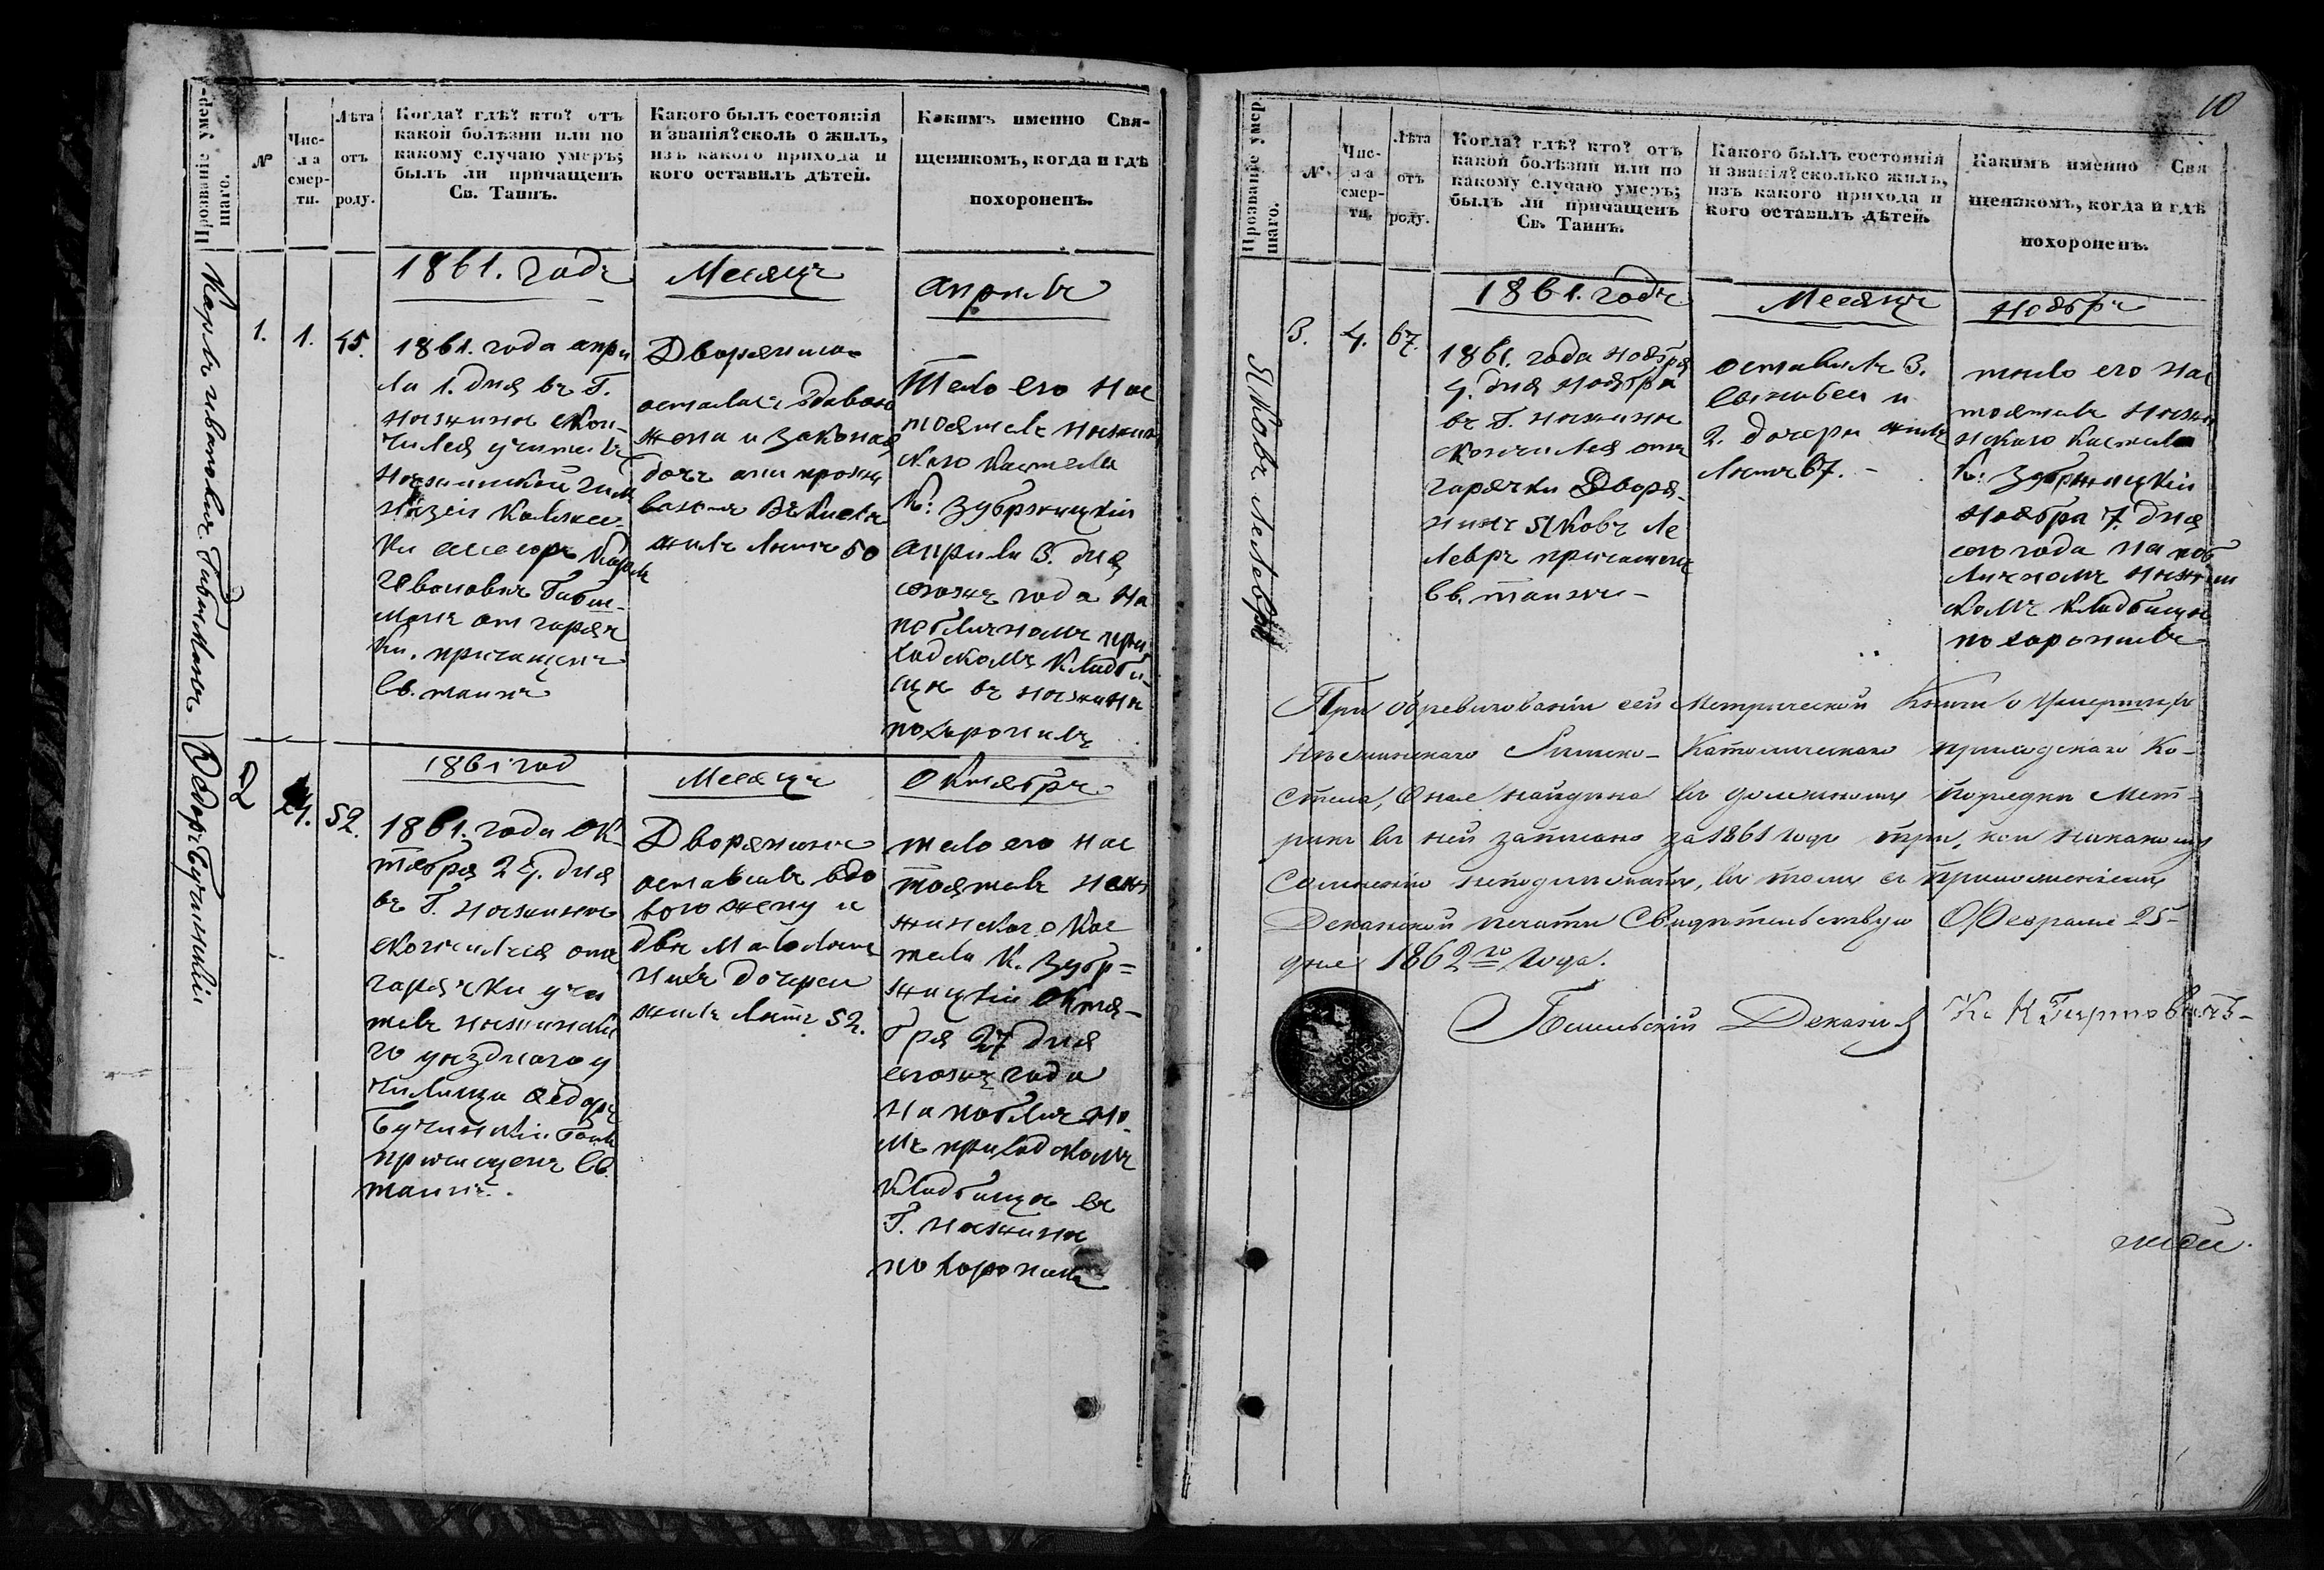 Прозваніе умер-
шаго.
№
Чис-
ла
смер-
ти.
Лѣта
отъ
роду.
Когда? гдѣ? кто? отъ
какой болѣзни или по
какому случаю умеръ;
былъ ли причащенъ
Св. Таинъ.
Какого былъ состоянія
и званія? сколь о жилъ,
изъ какого прихода и
кого оставилъ дѣтей.
Какимъ именно Свя-
щенникомъ, когда и гдѣ
похороненъ.
1861. годъ
Месяцъ
априль
Карлъ ивановичъ
1.
1.
45.
1861. года апри
ля 1. дня въ Г.
нежине скон-
чился учитель
нежинской гим
назеи
Ивановичъ
отъ горяч
ки. причащенъ
Св. таинъ
Дворянинъ
жена и законая
дочь они прожи
жилъ летъ
Тело его нас
тоятель нежин
ского кастела
К: Зубржицкій
априля 3. дня
сегожъ года на
публичномъ при
ходскомъ кладби-
ще въ нежине
похоронилъ
Федоръ Бучинскій
2
24.
52.
1861 год
Месяцъ
Октябръ
1861. года Ок
тября 24. дня
въ Г. нежине
скончился отъ
гарячки учи
тель нежинска
го уездного у
чилища Федоръ
Бучинскій былъ
причащенъ Св.
таинъ.
Дворянинъ
оставилъ вдо
вою жену и
две малолет
нихъ дочери
жилъ летъ 52.
тело его нас
тоятель неж
жинского кас
тела К. Зубр=
жицкій Октя-
бря 27 дня
сегожъ года
на публично
мъ приходскомъ
кладбище въ
Г. нежине
похоронилъ
10
Прозваніе умер
шаго.
№.
Чис-
ла
смер-
ти.
Лѣта
отъ
роду.
Когда? гдѣ? кто? отъ
какой болѣзни или по
какому случаю умеръ;
былъ ли причащенъ
Св. Таинъ.
Какого былъ состоянія
и званія? сколько жилъ,
изъ какого прихода и
кого оставилъ дѣтей.
Какимъ именно Свя
щенникомъ, когда и гдѣ
похороненъ.
1861. годъ
Месяцъ
Ноябръ
Яковъ
3.
4.
67.
1861. года ноября
4. дня ноября
въ Г. нежине
скончился отъ
гарячки Дворя-
нинъ Яковъ Ле
левръ причащенъ
Св. таинъ-
оставилъ 3.
сыновей и
2. дочери жилъ
летъ 67.-
тело его нас
тоятель нежи
нского кастела
К: Зубржицкій
ноября 7. дня
сего года на пуб
личномъ нежин
скомъ кладбище
похоронилъ
При обревизованіи сей Метрической Книги о Умершихъ
Нѣжинскаго Римско-Католическаго приходскаго Ко-
стела, оная найдена въ должномъ порядкѣ Мет-
рикъ въ ней записано за 1861 годъ три, кои никакому
Сомнѣнію неподлежатъ, въ томъ съ приложеніемъ
Деканской печати Свидѣтельствую Февраля 25-
дня 1862го Года.
Деканъ